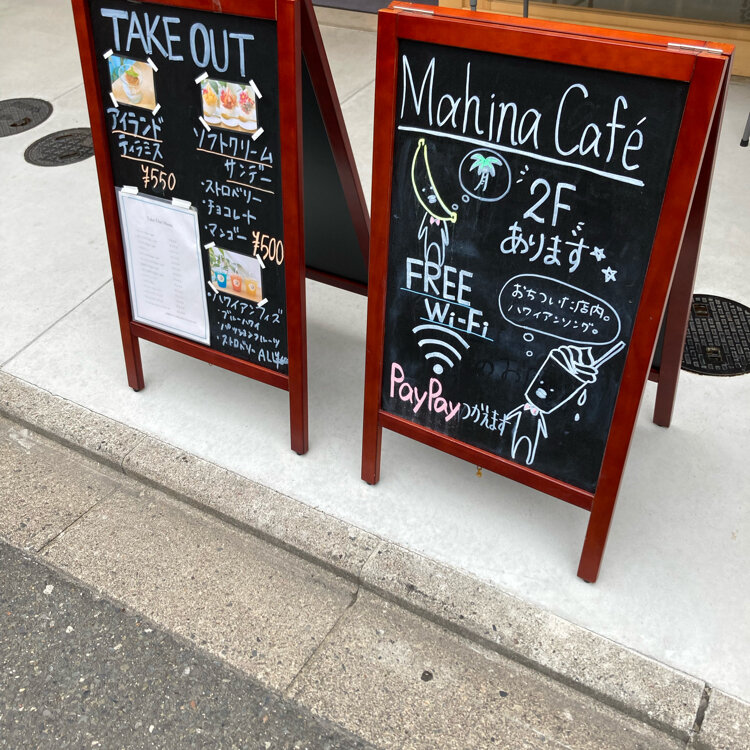 TAKE OUT
アイランド
ティラミス
¥550
ソフトクリーム
サンデー
・ストロベリー
・チョコレート
・マンゴー
¥500
・ハワイアンフィズ
・ブルーハワイ
・パッションフルーツ
・ストロベリー ALL
Mahina Café
2F
あります
FREE
Wi-Fi
おちついた店内。
ハワイアンソング。
PayPay つかえます